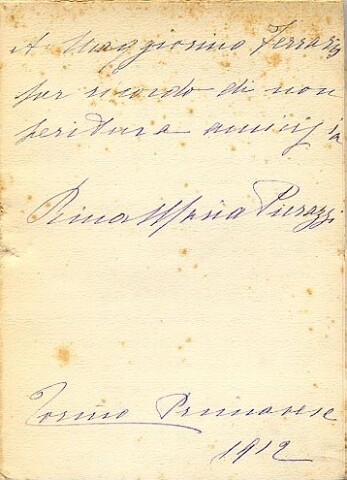 A Maggiorino Ferraris
per ricordo di non
peritura amicizia
Rina Maria Pierazzi
Torino Primavera
1912